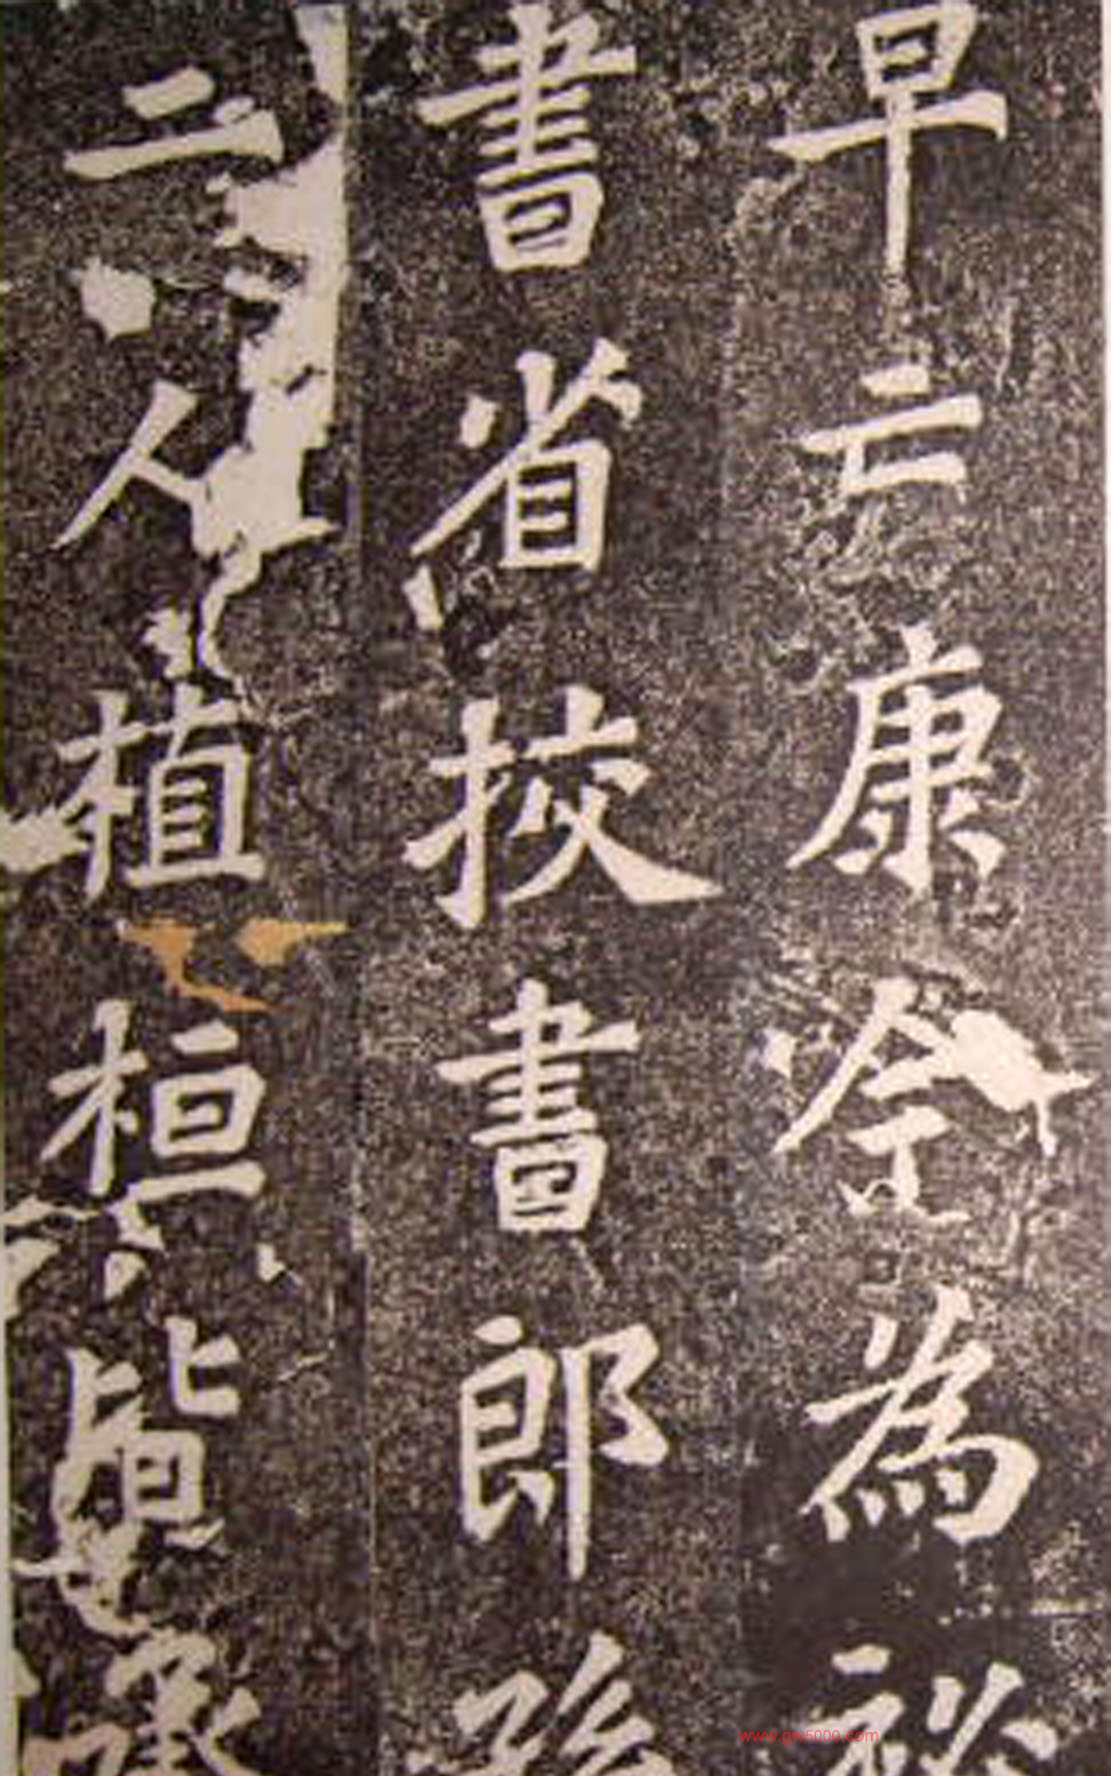 早亡康仝為祕
書省挍書郎孫
二人植桓皆承
www.gw5000.com